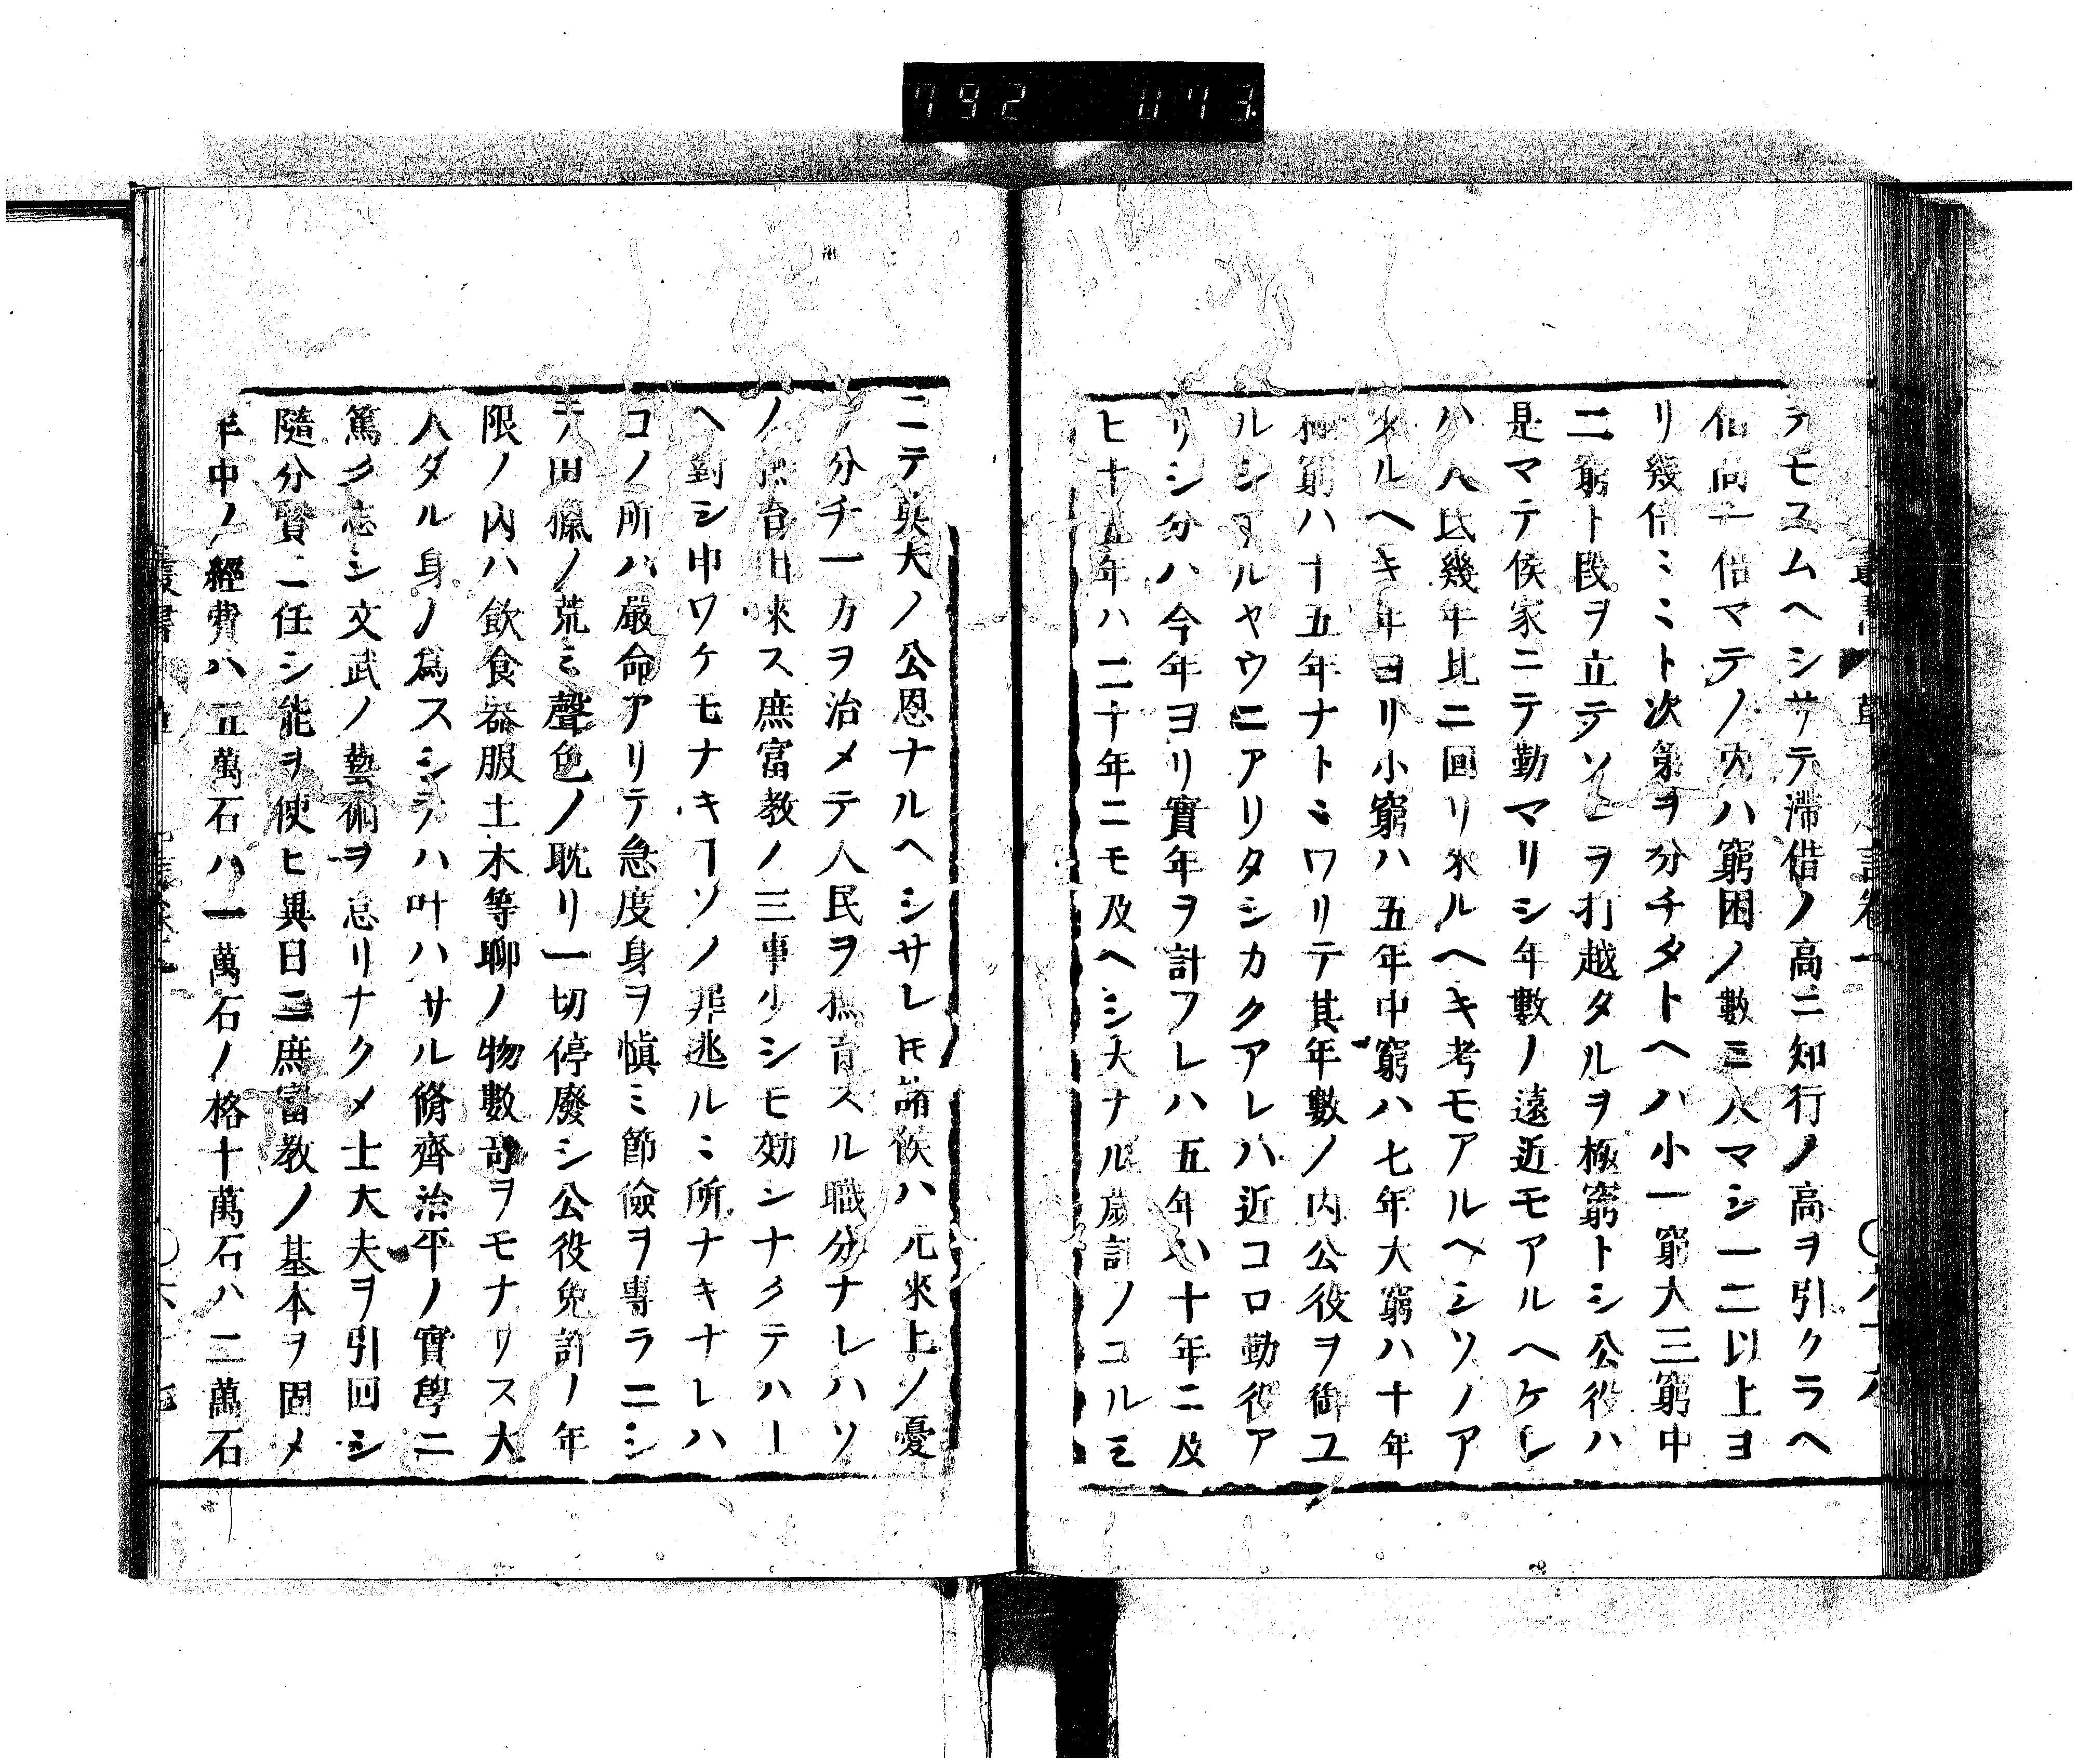 792 073
テモスムヘシサテ滯借ノ高ニ知行ノ高ヲ引クラヘ
倍マテノ内ハ窮困ノ數ニ入マシ一二以上ヨ
リ幾倍ミミト次第ヲ分チタトヘハ小一窮大三窮中
二窮ト段ヲ立テソレヲ打越タルヲ極窮トシ公役ハ
是マテ侯家ニテ勤マリシ年數ノ遠近モアルヘケレ
ハ人民幾年比ニ回リ來ルヘキ考モアルヘシソノア
タルヘキ年ヨリ小窮ハ五年中窮ハ七年大窮ハ十年
極窮ハ十五年ナトミワリテ其年數ノ内公役ヲ御ユ
ルシアルヤウニアリタシカクアレハ近コロ勤役ア
リシ分ハ今年ヨリ實年ヲ計フレハ五年ハ十年ニ及
ヒ十五年ハ二十年ニモ及ヘシ大ナル歳計ノコルミ
ニテ莫大ノ公恩ナルヘシサレ𪜈諸侯ハ元來上ノ憂
ヲ分チ一方ヲ治メテ人民ヲ撫育スル職分ナレハソ
ノ撫育出來ス庶富教ノ三事少シモ効シナクテハ上
ヘ對シ申ワケモナキヿソノ罪逃ルミ所ナキナレハ
コノ所ハ嚴命アリテ急度身ヲ愼ミ節儉ヲ專ラニシ
テ田獵ノ荒ミ聲色ノ耽リ一切停廢シ公役免許ノ年
限ノ内ハ飲食器服土木等聊ノ物數奇ヲモナリス大
人タル身ノ爲スシテハ叶ハサル脩齊治平ノ實學ニ
篤ク志シ文武ノ藝術ヲ怠リナクメ士大夫ヲ引回シ
隨分賢ニ任シ能ヲ使ヒ異日ニ庶富教ノ基本ヲ固メ
年中ノ經費ハ五萬石ハ一萬石ノ格十萬石ハ二萬石